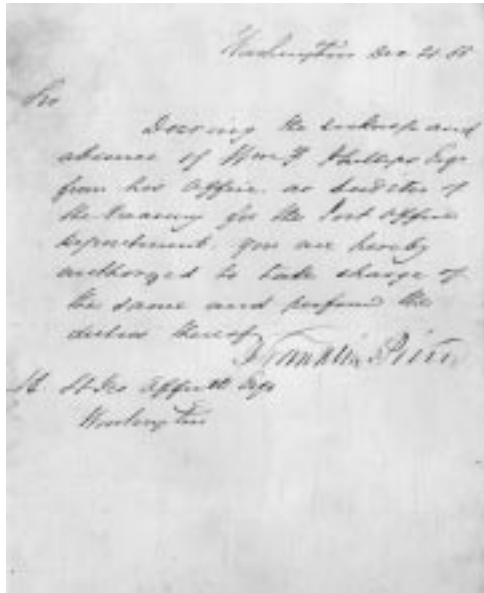 Washington Dec
Sir
During the sickness and
absence of Wm F Phillips Esqr
from his office as Auditor of
the Treasury for the Post Office
Department, you are hereby
authorized to take charge of
the same and perform the
duties thereof
Franklin Pierce
St Geo Offutt Esqr
Washington